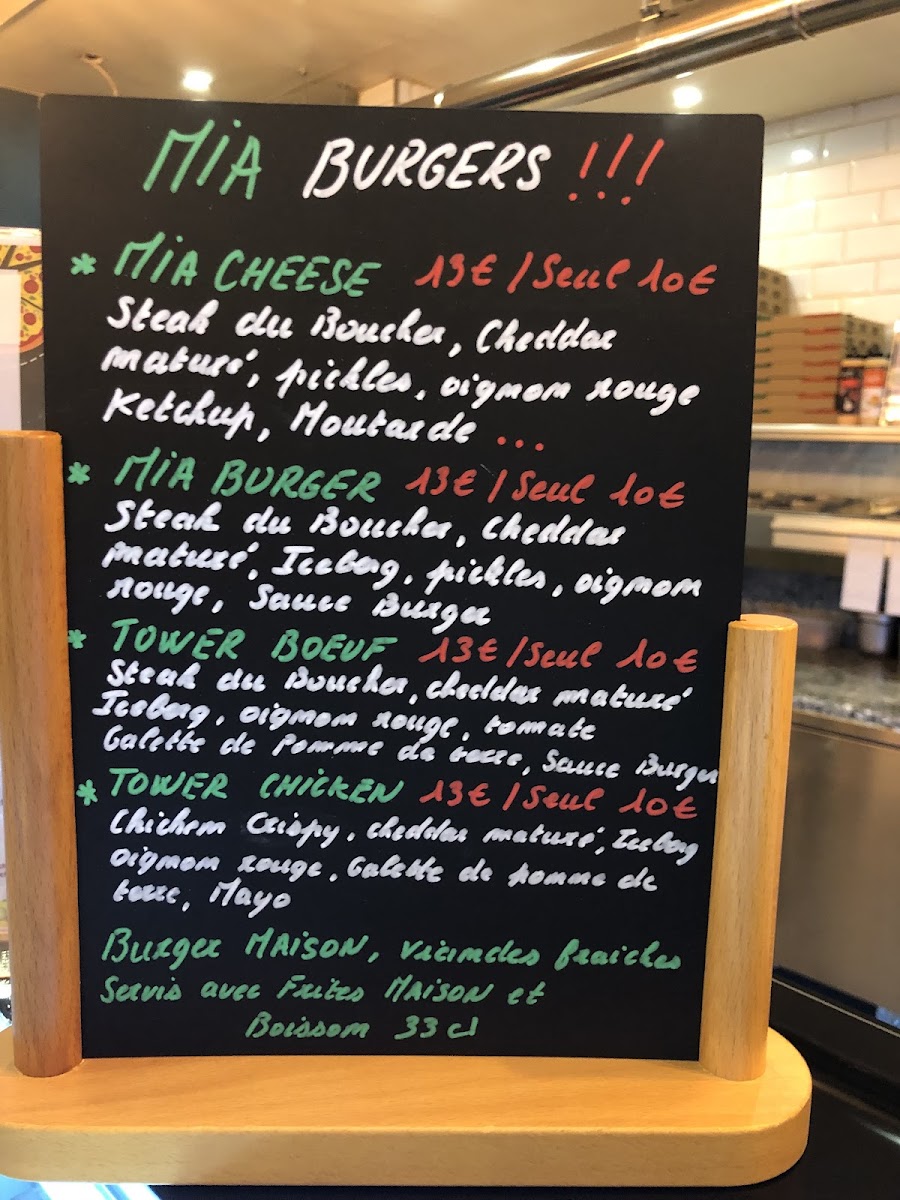 MiA BURGERS !!!
* MiA CHEESE 13€ / Seul 10€
Steak du Boucher, Cheddar
maturé, pickles, oignon rouge
Ketchup, Moutarde ...
* MiA BURGER 13€ / Seul 10€
Steak du Boucher, Cheddar
maturé, Iceberg, pickles, oignon
rouge, Sauce Burger
* TOWER BOEUF 13€ / Seul 10€
Steak du Boucher, cheddar maturé
Iceberg, oignon rouge, tomate
Galette de Pomme de terre, Sauce Burger
* TOWER CHiCKEN 13€ / Seul 10€
Chicken Crispy, cheddar maturé, Iceberg
oignon rouge, Galette de pomme de
terre, Mayo
Burger MAiSON, viandes fraiches
Servis avec Frites MAiSON et
Boisson 33cl